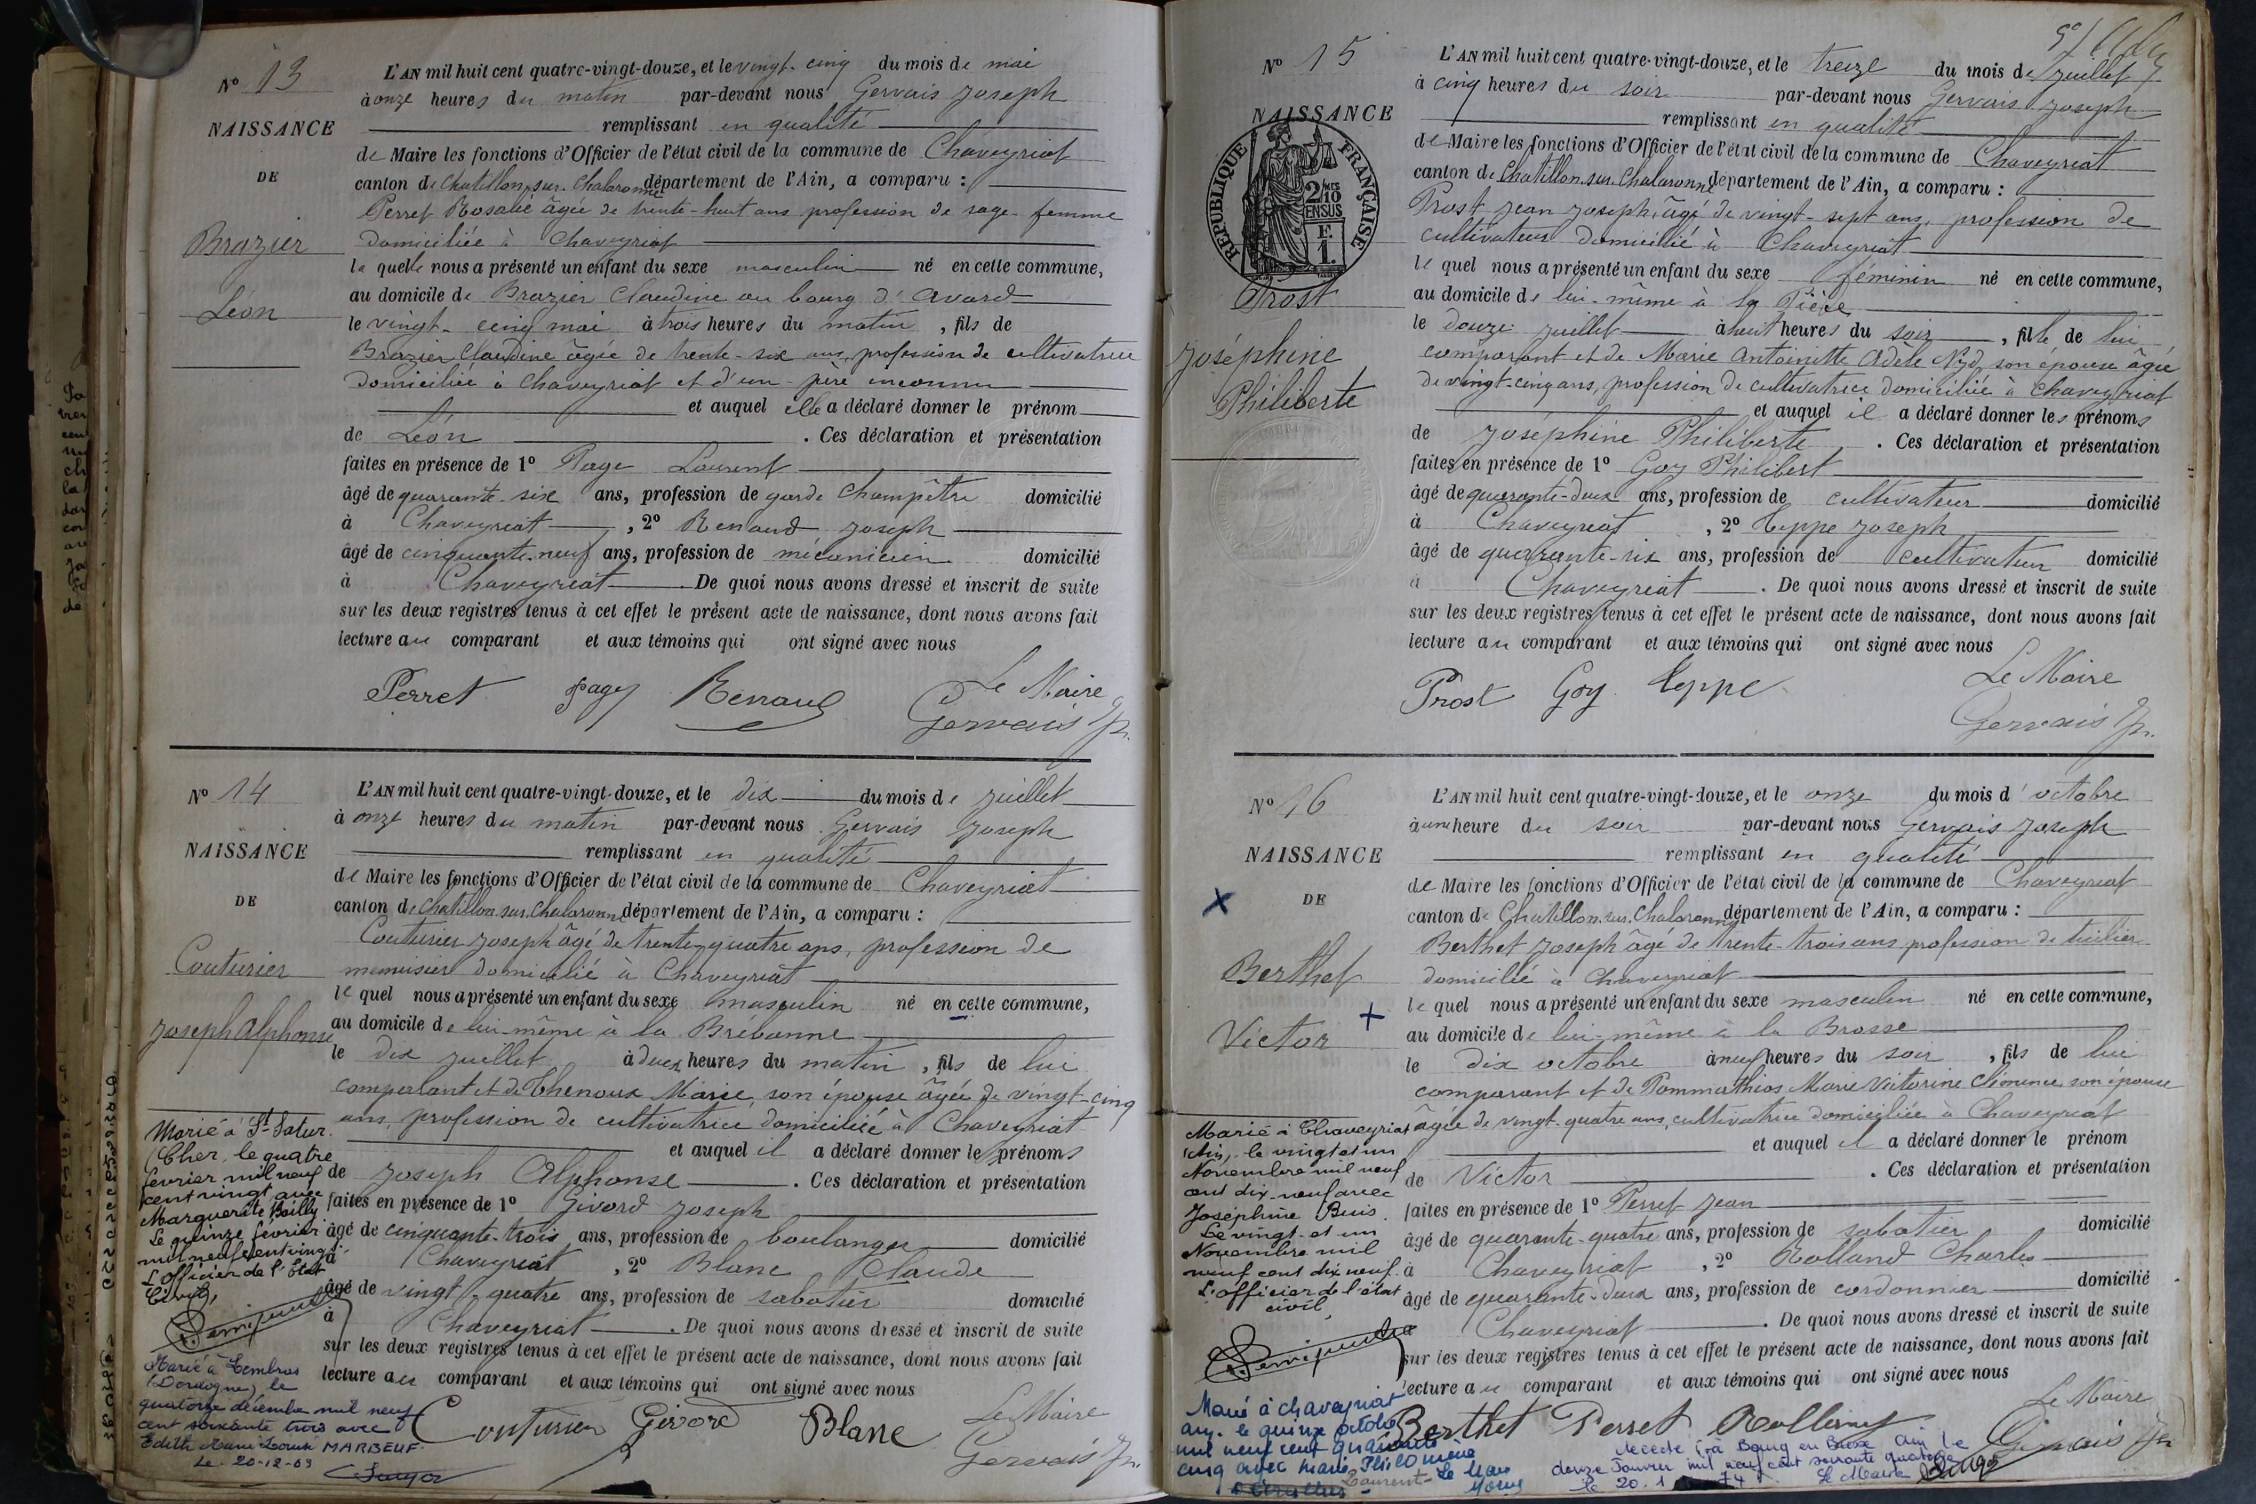 N° 13
NAISSANCE
DE
Brazier
Léon
L'AN mil huit cent quatre-vingt-douze, et le vingt-cinq du mois de mai
à onze heures du matin par-devant nous Gervais Joseph
remplissant en qualité
de Maire les fonctions d'Officier de l'état civil de la commune de Chaveyriat
canton de Chatillon-sur-Chalaronne département de l'Ain, a comparu :
Perret Rosalie âgée de trente-huit ans profession de sage-femme
domiciliée à Chaveyriat
la quelle nous a présenté un enfant du sexe masculin né en cette commune,
au domicile de Brazier Claudine au bourg d'Avard
le vingt-cinq mai à trois heures du matin, fils de
Brazier Claudine âgée de trente-six ans, profession de cultivatrice
domiciliée à Chaveyriat et d'un père inconnu
et auquel elle a déclaré donner le prénom
de Léon . Ces déclaration et présentation
faites en présence de 1° Page Laurent
âgé de quarante-six ans, profession de garde champêtre domicilié
à Chaveyriat , 2° Renaud Joseph
âgé de cinquante-neuf ans, profession de mécanicien domicilié
à Chaveyriat . De quoi nous avons dressé et inscrit de suite
sur les deux registres tenus à cet effet le présent acte de naissance, dont nous avons fait
lecture au comparant et aux témoins qui ont signé avec nous
Perret Page Renaud Le Maire
Gervais Jh.
N° 14
NAISSANCE
DE
Couturier
Joseph Alphonse
L'AN mil huit cent quatre-vingt-douze, et le dix du mois de juillet
à onze heures du matin par-devant nous Gervais Joseph
remplissant en qualité
de Maire les fonctions d'Officier de l'état civil de la commune de Chaveyriat
canton de Chatillon sur Chalaronne département de l'Ain, a comparu :
Couturier Joseph âgé de trente-quatre ans, profession de
menuisier domicilié à Chaveyriat
le quel nous a présenté un enfant du sexe masculin né en cette commune,
au domicile de lui-même à la Brévonne
le dix juillet à deux heures du matin, fils de lui
comparant et de Thenoux Marie, son épouse âgée de vingt-cinq
ans, profession de cultivatrice domiciliée à Chaveyriat
et auquel il a déclaré donner les prénoms
de Joseph Alphonse . Ces déclaration et présentation
faites en présence de 1° Givord Joseph
âgé de cinquante-trois ans, profession de boulanger domicilié
à Chaveyriat , 2° Blanc Claude
âgé de vingt-quatre ans, profession de sabotier domicilié
à Chaveyriat . De quoi nous avons dressé et inscrit de suite
sur les deux registres tenus à cet effet le présent acte de naissance, dont nous avons fait
lecture au comparant et aux témoins qui ont signé avec nous
Couturier Givord Blanc Le Maire
Gervais Jh.
Marié à St Satur
(Cher, le quatre
février mil neuf
cent vingt avec
Marguerite Bailly
Le quinze février
mil neuf cent vingt.
L'officier de l'Etat
Civil,
Marié à Lembras
(Dordogne), le
quatorze décembre mil neuf
cent soixante trois avec
Edith Marie Louise MARBEUF.
Le 20-12-63
N° 15
NAISSANCE
RÉPUBLIQUE FRANÇAISE
2/10 EN SUS
F. 1.
Prost
Joséphine
Philiberte
L'AN mil huit cent quatre-vingt-douze, et le treize du mois de juillet
à cinq heures du soir par-devant nous Gervais Joseph
remplissant en qualité
de Maire les fonctions d'Officier de l'état civil de la commune de Chaveyriat
canton de Chatillon sur Chalaronne département de l'Ain, a comparu :
Prost Jean Joseph, âgé de vingt-sept ans, profession de
cultivateur domicilié à Chaveyriat
le quel nous a présenté un enfant du sexe féminin né en cette commune,
au domicile de lui-même à la
le douze juillet à huit heures du soir, fille de lui
comparant et de Marie Antoinette Adèle Nyd son épouse âgée
de vingt-cinq ans, profession de cultivatrice domiciliée à Chaveyriat
et auquel il a déclaré donner les prénoms
de Joséphine Philiberte . Ces déclaration et présentation
faites en présence de 1° Goy Philibert
âgé de quarante-deux ans, profession de cultivateur domicilié
à Chaveyriat , 2° Teppe Joseph
âgé de quarante-six ans, profession de cultivateur domicilié
à Chaveyriat . De quoi nous avons dressé et inscrit de suite
sur les deux registres tenus à cet effet le présent acte de naissance, dont nous avons fait
lecture au comparant et aux témoins qui ont signé avec nous
Prost Goy Teppe Le Maire
Gervais Jh.
N° 16
NAISSANCE
DE
Berthet
Victor
L'AN mil huit cent quatre-vingt-douze, et le onze du mois d'octobre
à une heure du soir par-devant nous Gervais Joseph
remplissant en qualité
de Maire les fonctions d'Officier de l'état civil de la commune de Chaveyriat
canton de Chatillon sur Chalaronne département de l'Ain, a comparu :
Berthet Joseph âgé de trente-trois ans profession de tuilier
domicilié à Chaveyriat
le quel nous a présenté un enfant du sexe masculin né en cette commune,
au domicile de lui-même à la Brosse
le dix octobre à neuf heures du soir, fils de lui
comparant et de Pommathios Marie Victorine Clémence son épouse
âgée de vingt-quatre ans, cultivatrice domiciliée à Chaveyriat
et auquel il a déclaré donner le prénom
de Victor . Ces déclaration et présentation
faites en présence de 1° Perret Jean
âgé de quarante-quatre ans, profession de sabotier domicilié
à Chaveyriat , 2° Rolland Charles
âgé de quarante-deux ans, profession de cordonnier domicilié
Chaveyriat . De quoi nous avons dressé et inscrit de suite
sur les deux registres tenus à cet effet le présent acte de naissance, dont nous avons fait
lecture au comparant et aux témoins qui ont signé avec nous
Berthet Perret Rolland Le Maire
Gervais Jh
Marié à Chaveyriat
(Ain), le vingt et un
Novembre mil neuf
cent dix-neuf avec
Joséphine Buis.
Le vingt et un
Novembre mil
neuf cent dix neuf.
L'officier de l'état
civil
Marié à Chaveyriat
Ain. le quinze octobre
mil neuf cent quarante
cinq avec Marie Philomène
Laurent - Le Maire
Décédé à Bourg en Bresse Ain le
douze Janvier mil neuf cent soixante quatorze
le 20.1.74 Le Maire